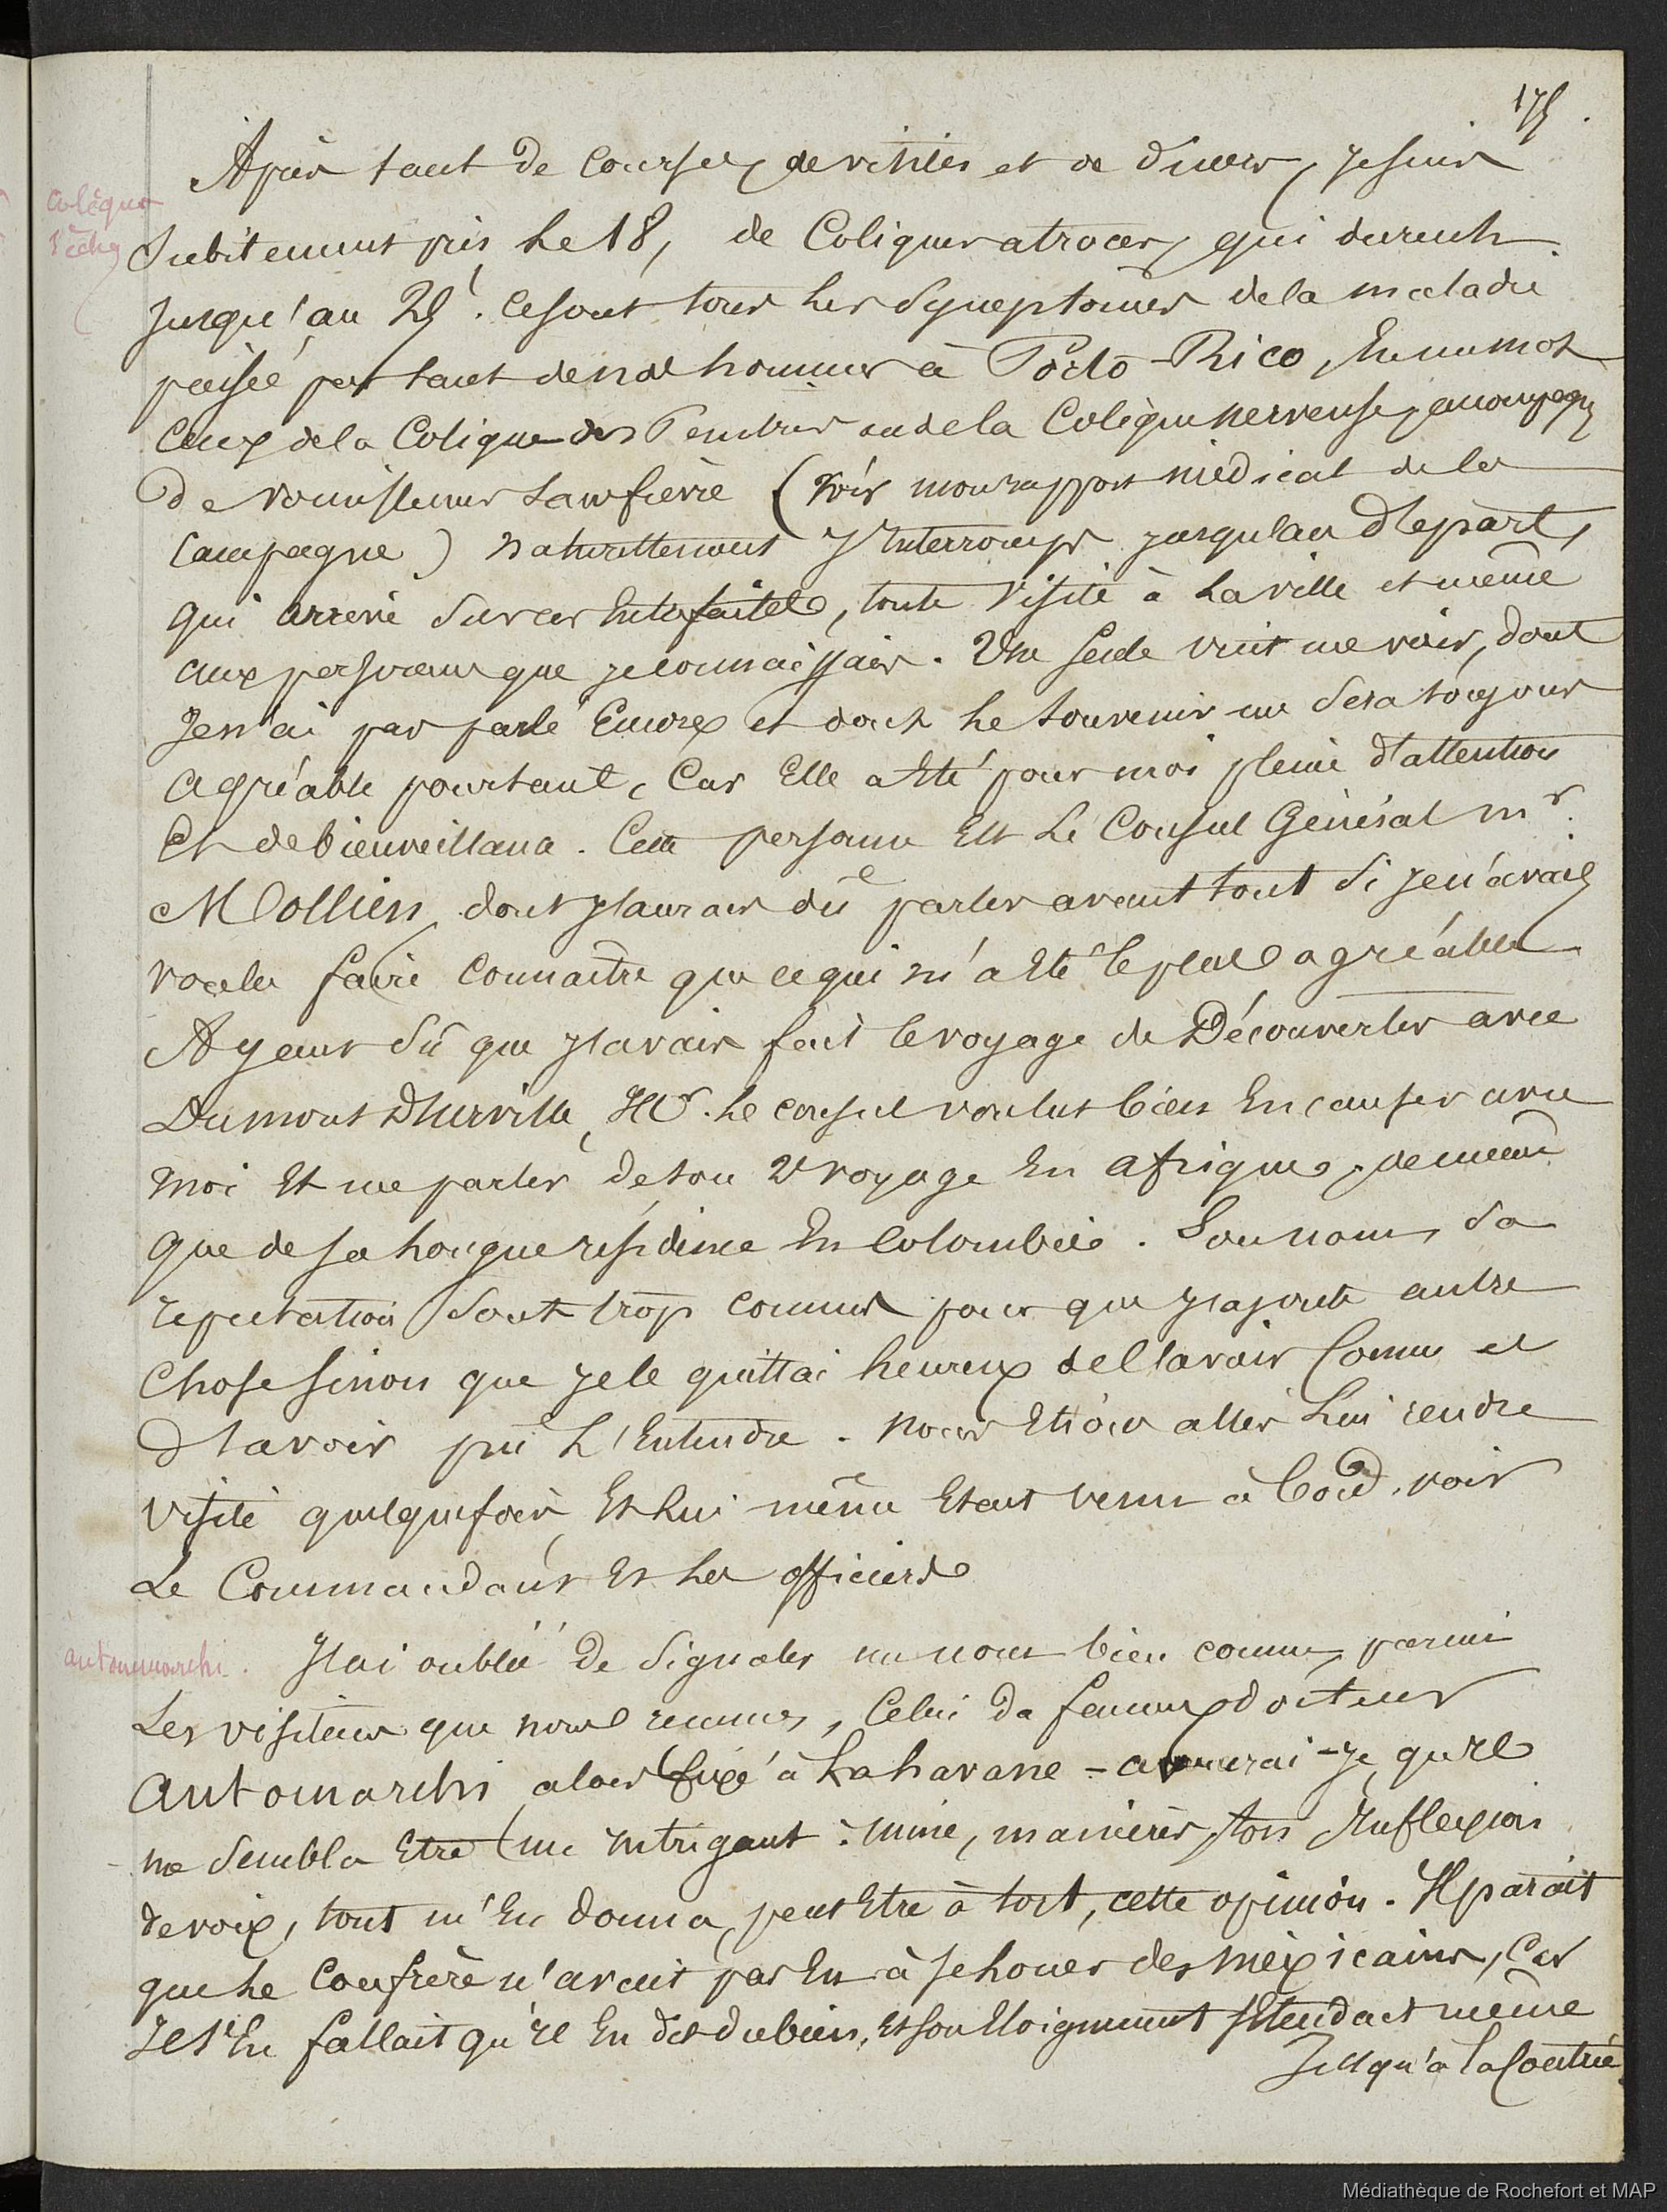 175.
Après tant de courses, de visites et de diners, je suis
Colique
sèche
Subitement pris le 18, de Coliques atroces, qui durent
jusqu'au 25. Ce sont tous les Symptomes de la maladie
par tant de nos hommes à Porto-Rico, En un mot
Ceux de la Colique des Peintres ou de la Colique nerveuse, accompagnés
de vomissemens sans fièvre (voir mon rapport médical de la
Campagne) naturellement J'Interromps jusqu'au départ,
qui arrive Sur ces Entrefaites, toute Visite à la ville et même
aux personnes que je connaissais. Une seule vint me voir, dont
Je n'ai pas parlé Encore et dont le souvenir me Sera toujours
agréable pourtant, Car Elle a Eté pour moi pleine d'attention
Et de bienveillance. Cette personne Est le Consul Général Mr.
Mollien, dont j'aurais dû parler avant tout Si je n'avais
voulu faire connaître que ce qui m'a Eté le plus agréable
Ayant Sû que j'avais fait le voyage de Découvertes avec
Dumont d'Urville, Mr. le consul voulut bien En causer avec
moi Et me parler de son voyage En afrique, de même
que de sa longue résidence En Colombie. Son nom, Sa
reputation Sont trop connus pour que j'ajoute autre
Chose sinon que je le quittai heureux de l'avoir Connu et
d'avoir pu l'Entendre. Nous Etions allés lui rendre
Visite quelquefois, Et lui même Etant venu à bord, voir
Le Commandant Et les officiers
antommarchi.
J'ai oublié de Signaler un nom bien connu, parmi
Les visiteurs que nous reçumes, Celui du fameux docteur
Antomarchi, alors fixé à la havane - avouerai-je qu'il
me Sembla Etre un intrigant : mine, manières, ton Inflexion
de voix, tout m'En donna, peut Etre à tort, cette opinion. Il parait
que le Confrère n'avait pas Eu à se louer des Mexicains, Car
Il s'En fallait qu'il En dit du bien, Et son Eloignement s'Etendait même
Jusqu'à la Contrée
Médiathèque de Rochefort et MAP